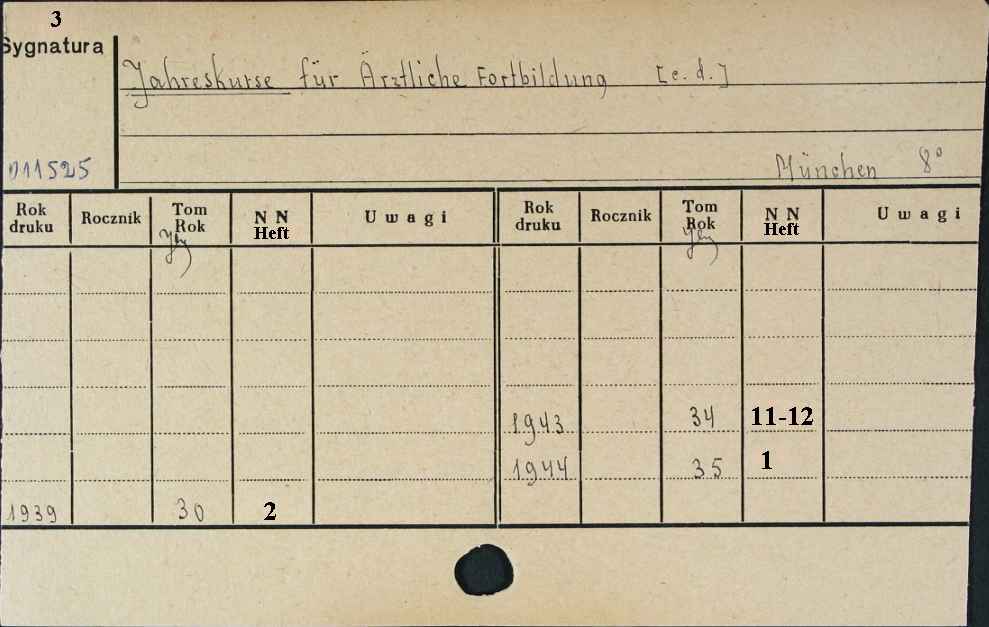 3
Sygnatura
Jahreskurse für Ärztliche Fortbildung [c. d.]
011525
München 8°
Rok druku Rocznik Tom Rok NN Heft Uwagi Rok druku Rocznik Tom Rok NN Heft Uwagi
1943 34 11-12
1944 35 1
1939 30 2